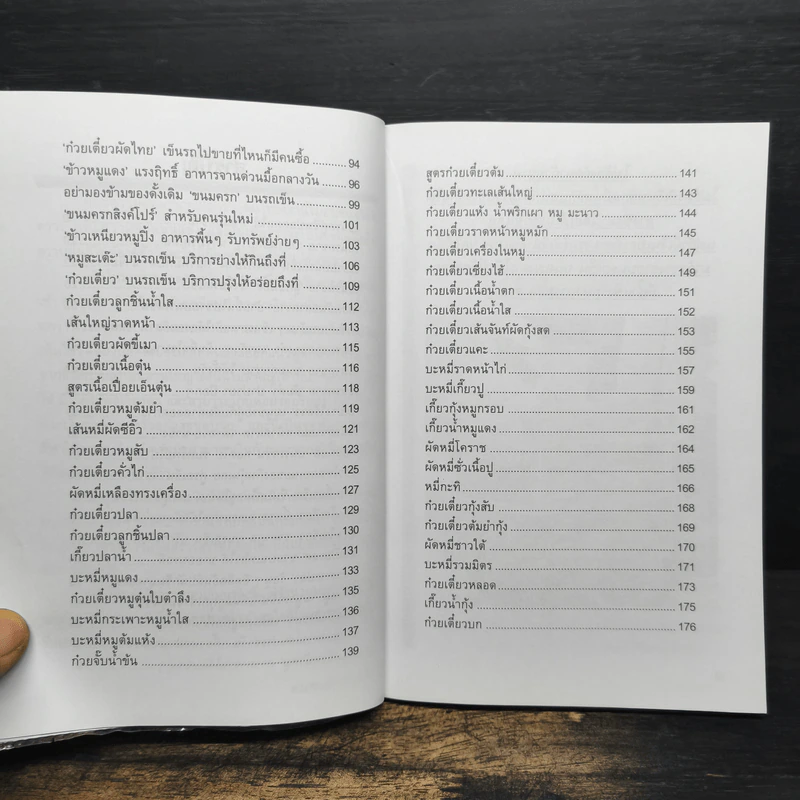 'ก๋วยเตี๋ยวผัดไทย' เข็นรถไปขายที่ไหนก็มีคนซื้อ .......... 94
'ข้าวหมูแดง' แรงฤิทธิ์ อาหารจานด่วนมื้อกลางวัน .......... 96
อย่ามองข้ามของดั้งเดิม 'ขนมครก' บนรถเข็น .......... 99
'ขนมครกสิงค์โปร์' สำหรับคนรุ่นใหม่ .......... 101
'ข้าวเหนียวหมูปิ้ง อาหารพื้นๆ รับทรัพย์ง่ายๆ .......... 103
'หมูสะเต๊ะ' บนรถเข็น บริการย่างให้กินถึงที่ .......... 106
'ก๋วยเตี๋ยว' บนรถเข็น บริการปรุงให้อร่อยถึงที่ .......... 109
ก๋วยเตี๋ยวลูกชิ้นน้ำใส .......... 112
เส้นใหญ่ราดหน้า .......... 113
ก๋วยเตี๋ยวผัดขี้เมา .......... 115
ก๋วยเตี๋ยวเนื้อตุ๋น .......... 116
สูตรเนื้อเปื่อยเอ็นตุ๋น .......... 118
ก๋วยเตี๋ยวหมูต้มยำ .......... 119
เส้นหมี่ผัดซีอิ๊ว .......... 121
ก๋วยเตี๋ยวหมูสับ .......... 123
ก๋วยเตี๋ยวคั่วไก่ .......... 125
ผัดหมี่เหลืองทรงเครื่อง .......... 127
ก๋วยเตี๋ยวปลา .......... 129
ก๋วยเตี๋ยวลูกชิ้นปลา .......... 130
เกี๊ยวปลาน้ำ .......... 131
บะหมี่หมูแดง .......... 133
ก๋วยเตี๋ยวหมูตุ๋นใบตำลึง .......... 135
บะหมี่กระเพาะหมูน้ำใส .......... 136
บะหมี่หมูต้มแห้ง .......... 137
ก๋วยจั๊บน้ำข้น .......... 139
สูตรก๋วยเตี๋ยวต้ม .......... 141
ก๋วยเตี๋ยวทะเลเส้นใหญ่ .......... 143
ก๋วยเตี๋ยวแห้ง น้ำพริกเผา หมู มะนาว .......... 144
ก๋วยเตี๋ยวราดหน้าหมูหมัก .......... 145
ก๋วยเตี๋ยวเครื่องในหมู .......... 147
ก๋วยเตี๋ยวเซี่ยงไฮ้ .......... 149
ก๋วยเตี๋ยวเนื้อน้ำตก .......... 151
ก๋วยเตี๋ยวเนื้อน้ำใส .......... 152
ก๋วยเตี๋ยวเส้นจันท์ผัดกุ้งสด .......... 153
ก๋วยเตี๋ยวแคะ .......... 155
บะหมี่ราดหน้าไก่ .......... 157
บะหมี่เกี๊ยวปู .......... 159
เกี๊ยวกุ้งหมูกรอบ .......... 161
เกี๊ยวน้ำหมูแดง .......... 162
ผัดหมี่โคราช .......... 164
ผัดหมี่ซั่วเนื้อปู .......... 165
หมี่กะทิ .......... 166
ก๋วยเตี๋ยวกุ้งสับ .......... 168
ก๋วยเตี๋ยวต้มยำกุ้ง .......... 169
ผัดหมี่ชาวใต้ .......... 170
บะหมี่รวมมิตร .......... 171
ก๋วยเตี๋ยวหลอด .......... 173
เกี๊ยวน้ำกุ้ง .......... 175
ก๋วยเตี๋ยวบก .......... 176